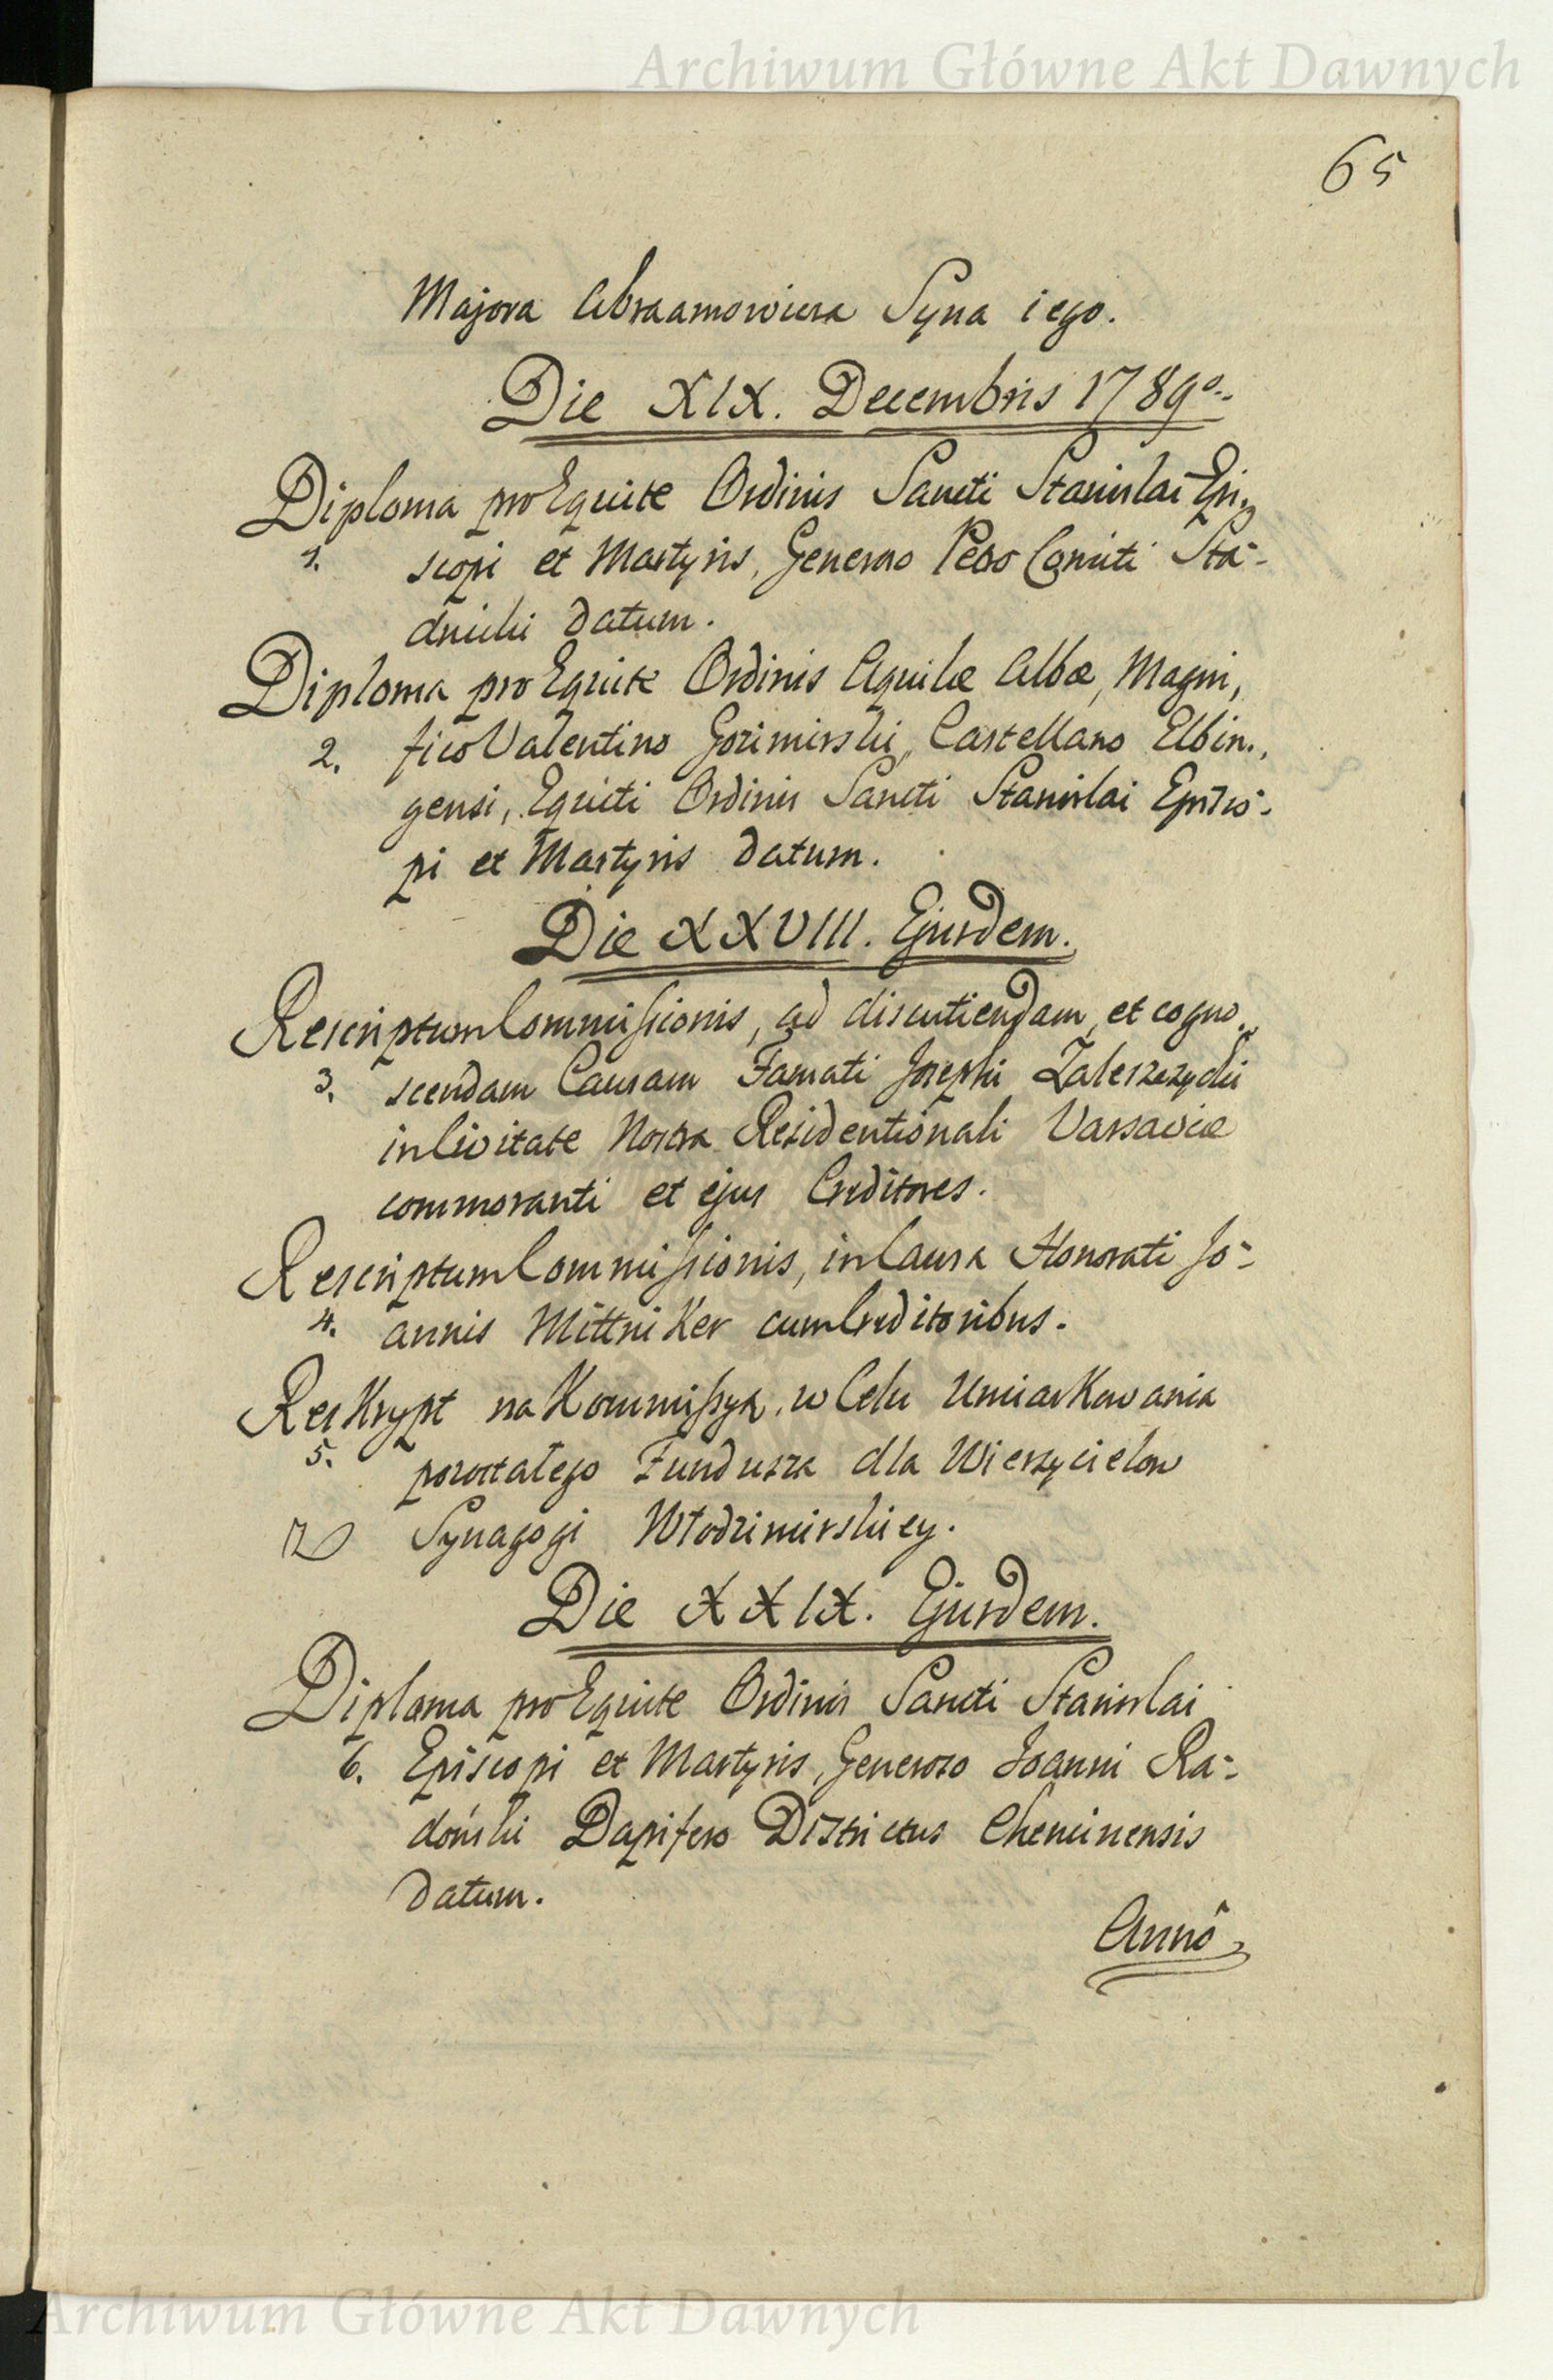 Archiwum Główne Akt Dawnych
65
Majora Abraamowicza Syna iego.
Die XIX. Decembris 1789o.
Diploma pro Equite Ordinis Sancti Stanislai Epi,
1. scopi et Martyris, Generoso Petro Comiti Sta-
dnicki datum.
Diploma pro Equite Ordinis Aquilæ Albæ, Magni,
2. fico Valentino Gozimirski, Castellano Elbin,
gensi, Equiti Ordinis Sancti Stanislai Episco-
pi et Martyris datum.
Die XXVIII. Ejusdem.
Rescriptum Commissionis, ad discutiendam, et cogno,
3. scendam Causam Famati Josephi Zaleszczycki
in Civitate Nostra Residentionali Varsaviæ
commoranti et ejus Creditores.
Rescriptum Commissionis, in Causa Honorati Jo-
4. annis Mittniker cum Creditoribus.
Reskrypt na Kommissyą, w Celu Umiarkowania
5. pozostałego Fundusza dla Wierzycielow
Synagogi Włodzimirskiey.
Die XXIX. Ejusdem.
Diploma pro Equite Ordinis Sancti Stanislai
6. Episcopi et Martyris, Generoso Joanni Ra-
doński Dapifero Districtus Chencinensis
datum.
Annô
Archiwum Główne Akt Dawnych